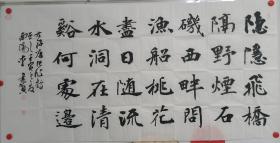 隐隐飛橋
隔野煙石
磯西畔問
漁船桃花
盡日随流
水洞在清
谿何處邊